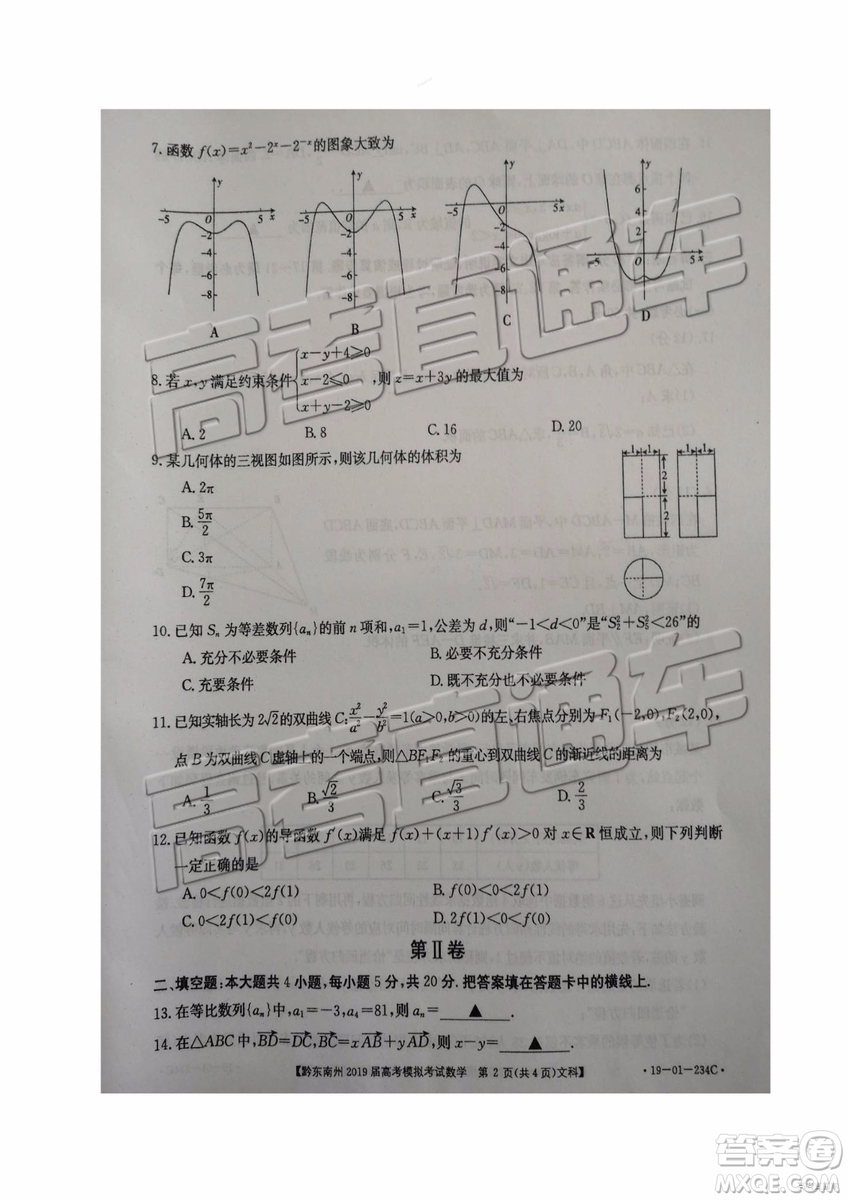 7.函数 f(x)=x²-2ˣ-2⁻ˣ的图象大致为
A B C D
8.若 x,y 满足约束条件{x-y+4⩾0, x-2⩽0, x+y-2⩾0 ,则 z=x+3y 的最大值为
A.2 B.8 C.16 D.20
9.某几何体的三视图如图所示,则该几何体的体积为
A.2π
B.5π/2
C.3π
D.7π/2
10.已知 Sₙ 为等差数列{aₙ}的前 n 项和,a₁=1,公差为 d,则“-1<d<0”是“S₂²+S₃²<26”的
A.充分不必要条件 B.必要不充分条件
C.充要条件 D.既不充分也不必要条件
11.已知实轴长为 2√2的双曲线 C:x²/a²-y²/b²=1(a>0,b>0)的左、右焦点分别为 F₁(-2,0),F₂(2,0),
点 B 为双曲线 C 虚轴上的一个端点,则△BF₁F₂的重心到双曲线 C 的渐近线的距离为
A.1/3 B.√2/3 C.√3/3 D.2/3
12.已知函数 f(x)的导函数 f′(x)满足 f(x)+(x+1)f′(x)>0 对 x∈R恒成立,则下列判断
一定正确的是
A.0<f(0)<2f(1) B.f(0)<0<2f(1)
C.0<2f(1)<f(0) D.2f(1)<0<f(0)
第Ⅱ卷
二、填空题:本大题共 4 小题,每小题 5 分,共 20 分.把答案填在答题卡中的横线上.
13.在等比数列{aₙ}中,a₁=-3,a₄=81,则 aₙ=▲.
14.在△ABC 中,BD→=DC→,BC→=xAB→+yAD→,则 x-y=▲.
【黔东南州 2019 届高考模拟考试数学 第 2 页(共 4 页)文科】 ·19-01-234C·
高考直通车
高考直通车
答案圈